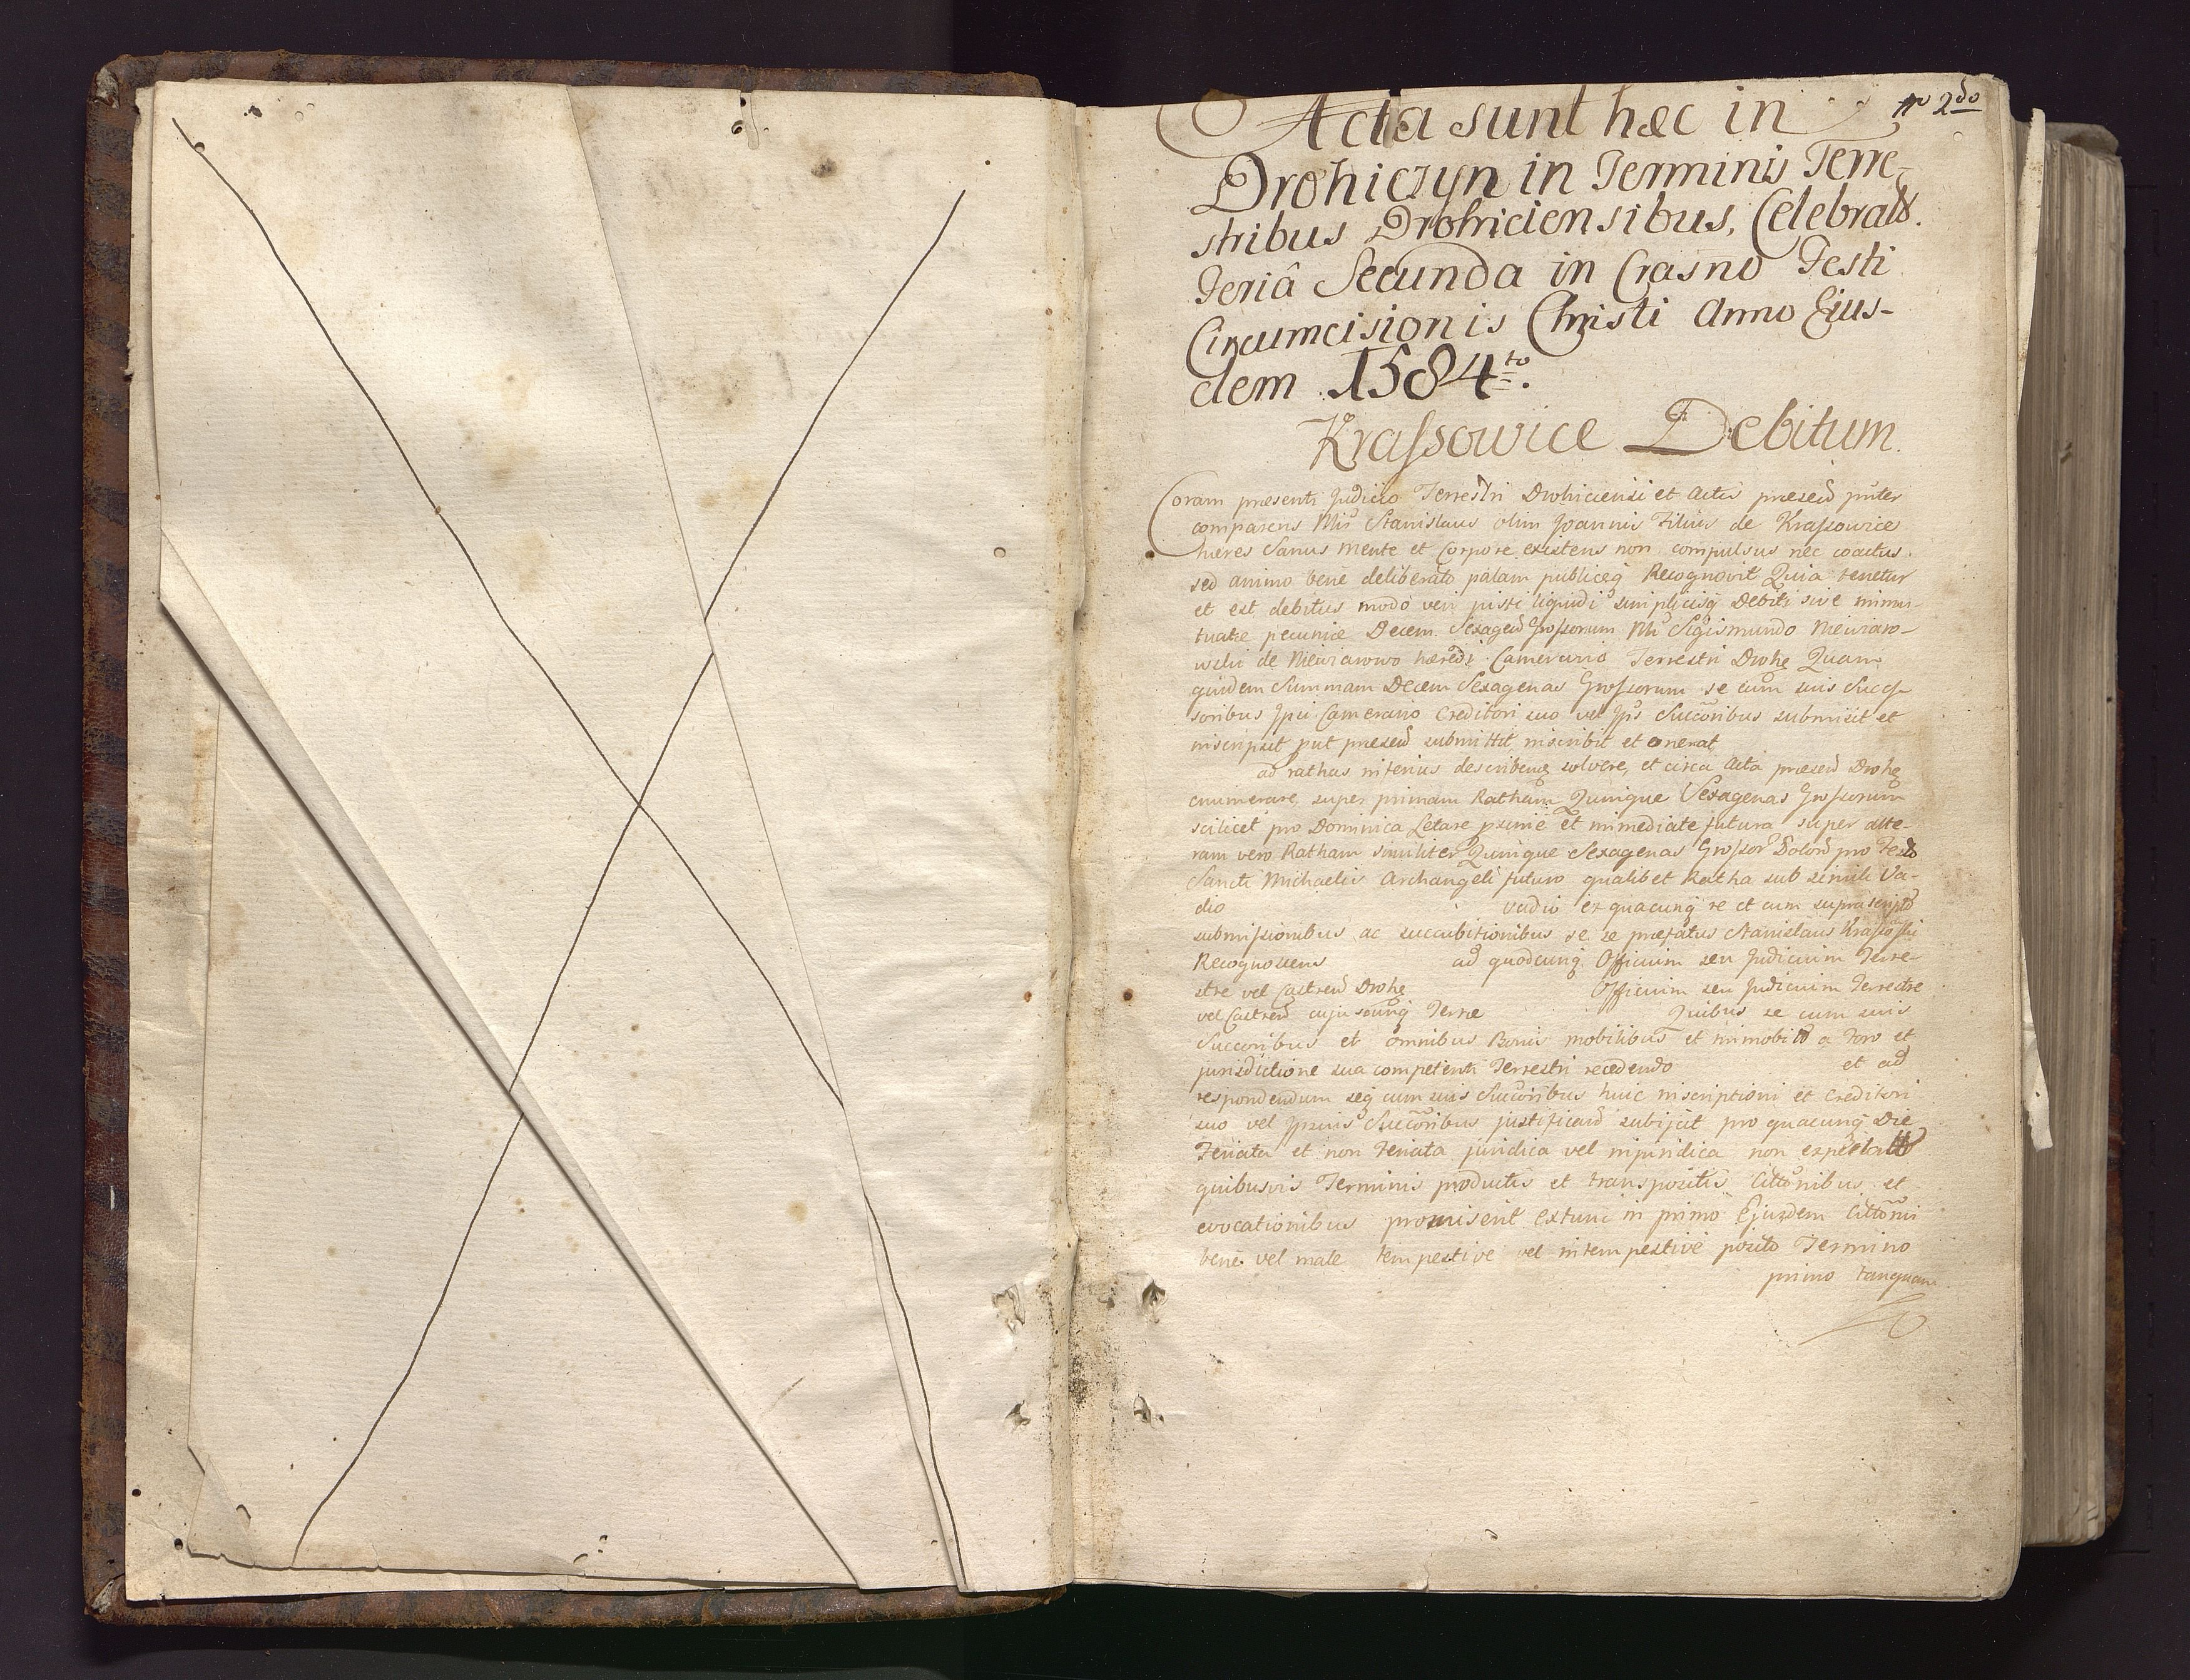 No 2do
Acta sunt hæc in
Drohiczyn in Terminis Terre-
stribus Drohiciensibus, Celebrat.
Feriâ Secunda in Crastino Festi
Circumcisionis Christi Anno Ejus-
dem 1584to.
Krassowice Debitum.
Coram præsenti Judicio Terrestri Drohiciensi et Actis præsen
comparens Stanislaus olim Joannis Filius de Krassowice
hæres Sanus mente et Corpore existens non compulsus nec coactus.
sed animo bene deliberato palam publiceq Recognovit Quia tenetur
et est debitus modo veri justi liquidi simplicisq Debiti sive mu-
tuatæ pecuniæ Decem Sexagen Grossorum Sigismundo Niewiaro-
wski de Niewiarowo hæredi Camerario Terrestri Drohe Quam
quidem Summam Decem Sexagenas Grossorum se cum suis Succes-
soribus Ipsi Camerario Creditori suo vel Succoribus submisit et
inscripsit put præsen submittit inscribit et onerat
ad rathas inferius describen solvere, et circa Acta præsen Drohe
enumerare, super primam Ratham Quinque Sexagenas Grossorum
scilicet pro Dominica Letare et immediate futura super alte-
ram vero Ratham similiter Quinque Sexagenas Grossor pro Festo
Sancti Michaelis Archangeli futuro qualibet Ratha sub simili Va-
dio vadio ex quacunq re et cum suprascript
submissionibus ac succubitionibus se se præfatus Stanislaus Krassowski
Recognoscens ad quodcunq Officium seu Judicium Terre-
stre vel Castren Drohe Officium seu Judicium Terrestre
vel Castren cujuscunq Terræ Quibus se cum suis
Succoribus et omnibus Bonis mobilibus et immobil a Foro et
jurisdictione sua competenti Terrestri recedendo et ad
respondendum seq cum suis Succoribus huic inscriptioni et Creditori
suo vel Ipsius Succoribus justifican subijcit pro quacunq Die
Feriata et non Feriata juridica vel injuridica non expectat
quibusvis Terminis productis et transpositis Citтonibus et
evocationibus promiserit extunc in primo Ejusdem Cittonis
bene vel male tempestive vel intempestive posito Termino
primo tanquam